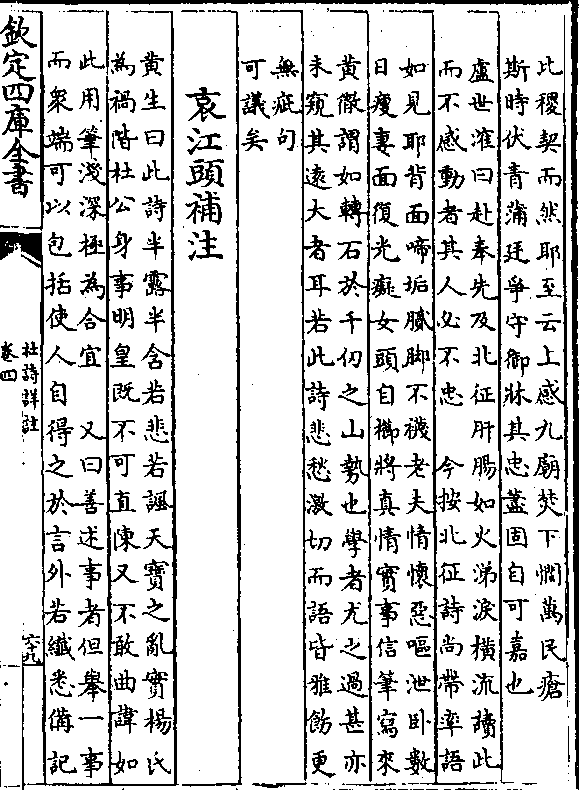 比稷契而然耶至云上感九廟焚下憫萬民瘡
斯時伏青蒲廷爭守御牀其忠藎固自可嘉也
盧世㴶曰赴奉先及北征肝腸如火涕淚橫流讀此
而不感動者其人必不忠　今按北征詩尚帶率語
如見耶背面啼垢膩脚不襪老夫情懷惡嘔泄卧數
日瘦妻面復光癡女頭自櫛將真情實事信筆寫來
黄徹謂如轉石於千仞之山勢也學者尤之過甚亦
未窺其遠大者耳若此詩悲愁激切而語皆雅飭更
無疵句
可議矣
哀江頭補注
黄生曰此詩半露半含若悲若諷天寶之亂實楊氏
為禍階杜公身事明皇既不可直陳又不敢曲諱如
此用筆淺深極為合宜　又曰善述事者但舉一事
而衆端可以包括使人自得之於言外若纖悉備記
欽定四庫全書
杜詩詳註
卷四
六十九